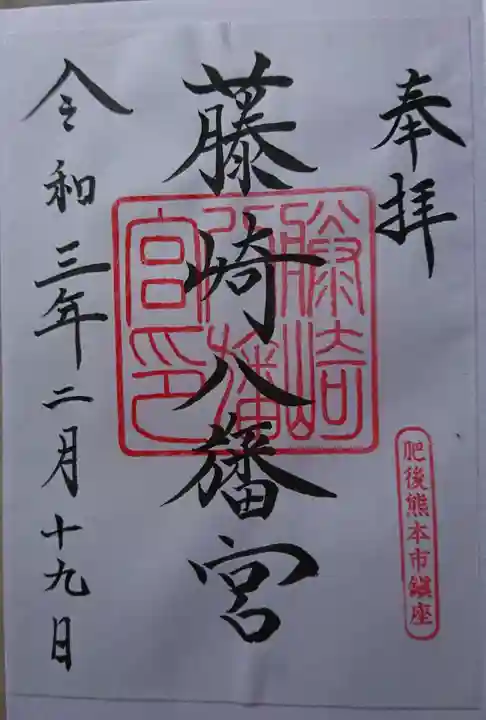 奉拝
藤崎八旛宮
令和三年二月十九日
藤崎八旛宮印
肥後熊本市鎮座